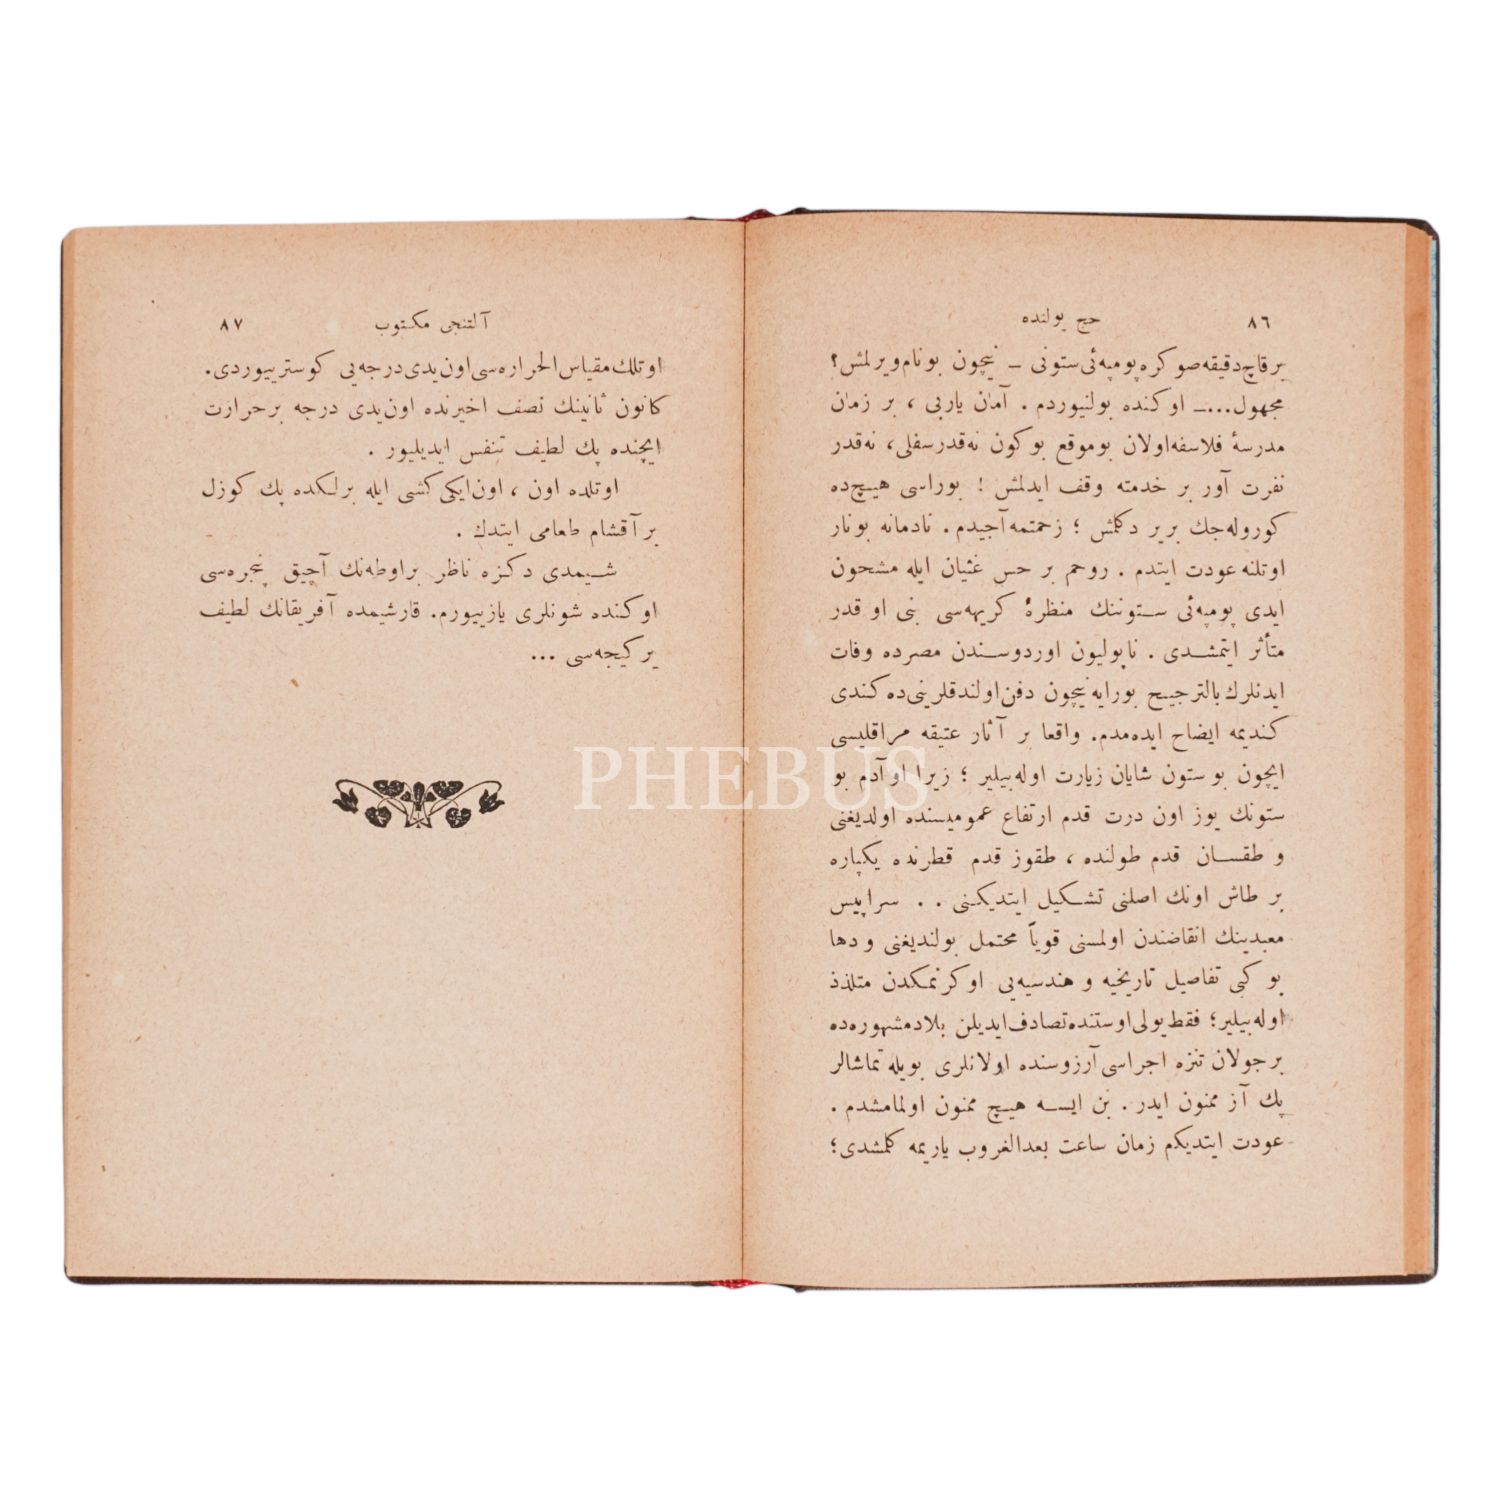 ٨٦
حج يولنده
برقاچ دقيقه صوكره پومپه‌ئى ستونى ـ نيچون بونام ويرلمش؟
مجهول...ـ اوكنده بولنيوردم . آمان ياربى ، بر زمان
مدرسۀ فلاسفه اولان بوموقع بوكون نه‌قدرسفلى، نه‌قدر
نفرت آور بر خدمته وقف ايدلمش ! بوراسى هيچ‌ده
كوروله‌جك برير دكلمش ؛ زحمتمه آجيدم . نادمانه بونار
اوتلنه عودت ايتدم . روحم بر حس غثيان ايله مشحون
ايدى پومپه‌ئى ستوننك منظرۀ كريهه‌سى بنى او قدر
متأثر ايتمشدى . ناپوليون اوردوسندن مصرده وفات
ايدنلرك بالترجيح بورايه نيچون دفن اولندقلرينى‌ده كندى
كنديمه ايضاح ايده‌مدم. واقعا بر آثار عتيقه مراقليسى
ايچون بوستون شايان زيارت اوله‌بيلير ؛ زيرا او آدم بو
ستونك يوز اون درت قدم ارتفاع عموميسنده اولديغنى
و طقسان قدم طولنده ، طقوز قدم قطرنده يكپاره
بر طاش اونك اصلنى تشكيل ايتديكنى . . سراپيس
معبدينك انقاضندن اولمسنى قوياً محتمل بولنديغنى و دها
بو كبى تفاصيل تاريخيه و هندسيه‌يى اوكرنمكدن متلذذ
اوله‌بيلير؛ فقط يولى اوستنده تصادف ايديلن بلاد مشهوره‌ده
برجولان تنزه اجراسى آرزوسنده اولانلرى بويله تماشالر
پك آز ممنون ايدر . بن ايسه هيچ ممنون اولمامشدم .
عودت ايتديكم زمان ساعت بعدالغروب ياريمه كلمشدى؛
آلتنجى مكتوب
٨٧
اوتلك مقياس الحراره‌سى اون‌يدى درجه‌يى كوستريیوردى.
كانون ثانينك نصف اخيرنده اون‌يدى درجه برحرارت
ايچنده پك لطيف تنفس ايديليور .
اوتلده اون ، اون‌ايكى كشى ايله برلكده پك كوزل
برآقشام طعامى ايتدك .
شيمدى دكزه ناظر براوطه‌نك آچيق پنجره‌سى
اوكنده شونلرى يازييورم. قارشيمده آفريقانك لطيف
بركيجه‌سى ...
PHEBUS